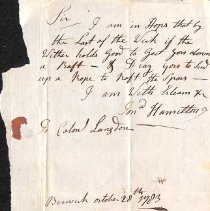 Sir
I am in Hops that by
the Last of the Week if the
Wither holds Good to Got down
a Raft – & Pray you to Lend
up a Rope to Raft the Spars –
I am With Esteam &c
Jonᵃ Hamilton
To Colonˡ Langdon
Berwick october 28ᵗʰ 1783